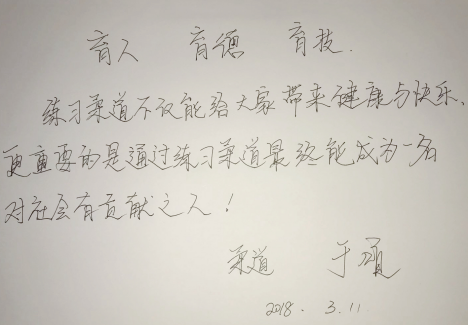 育人 育德 育技.
练习柔道不仅能给大家带来健康与快乐、
更重要的是通过练习柔道最终能成为一名
对社会有贡献之人！
柔道 于
2018. 3. 11